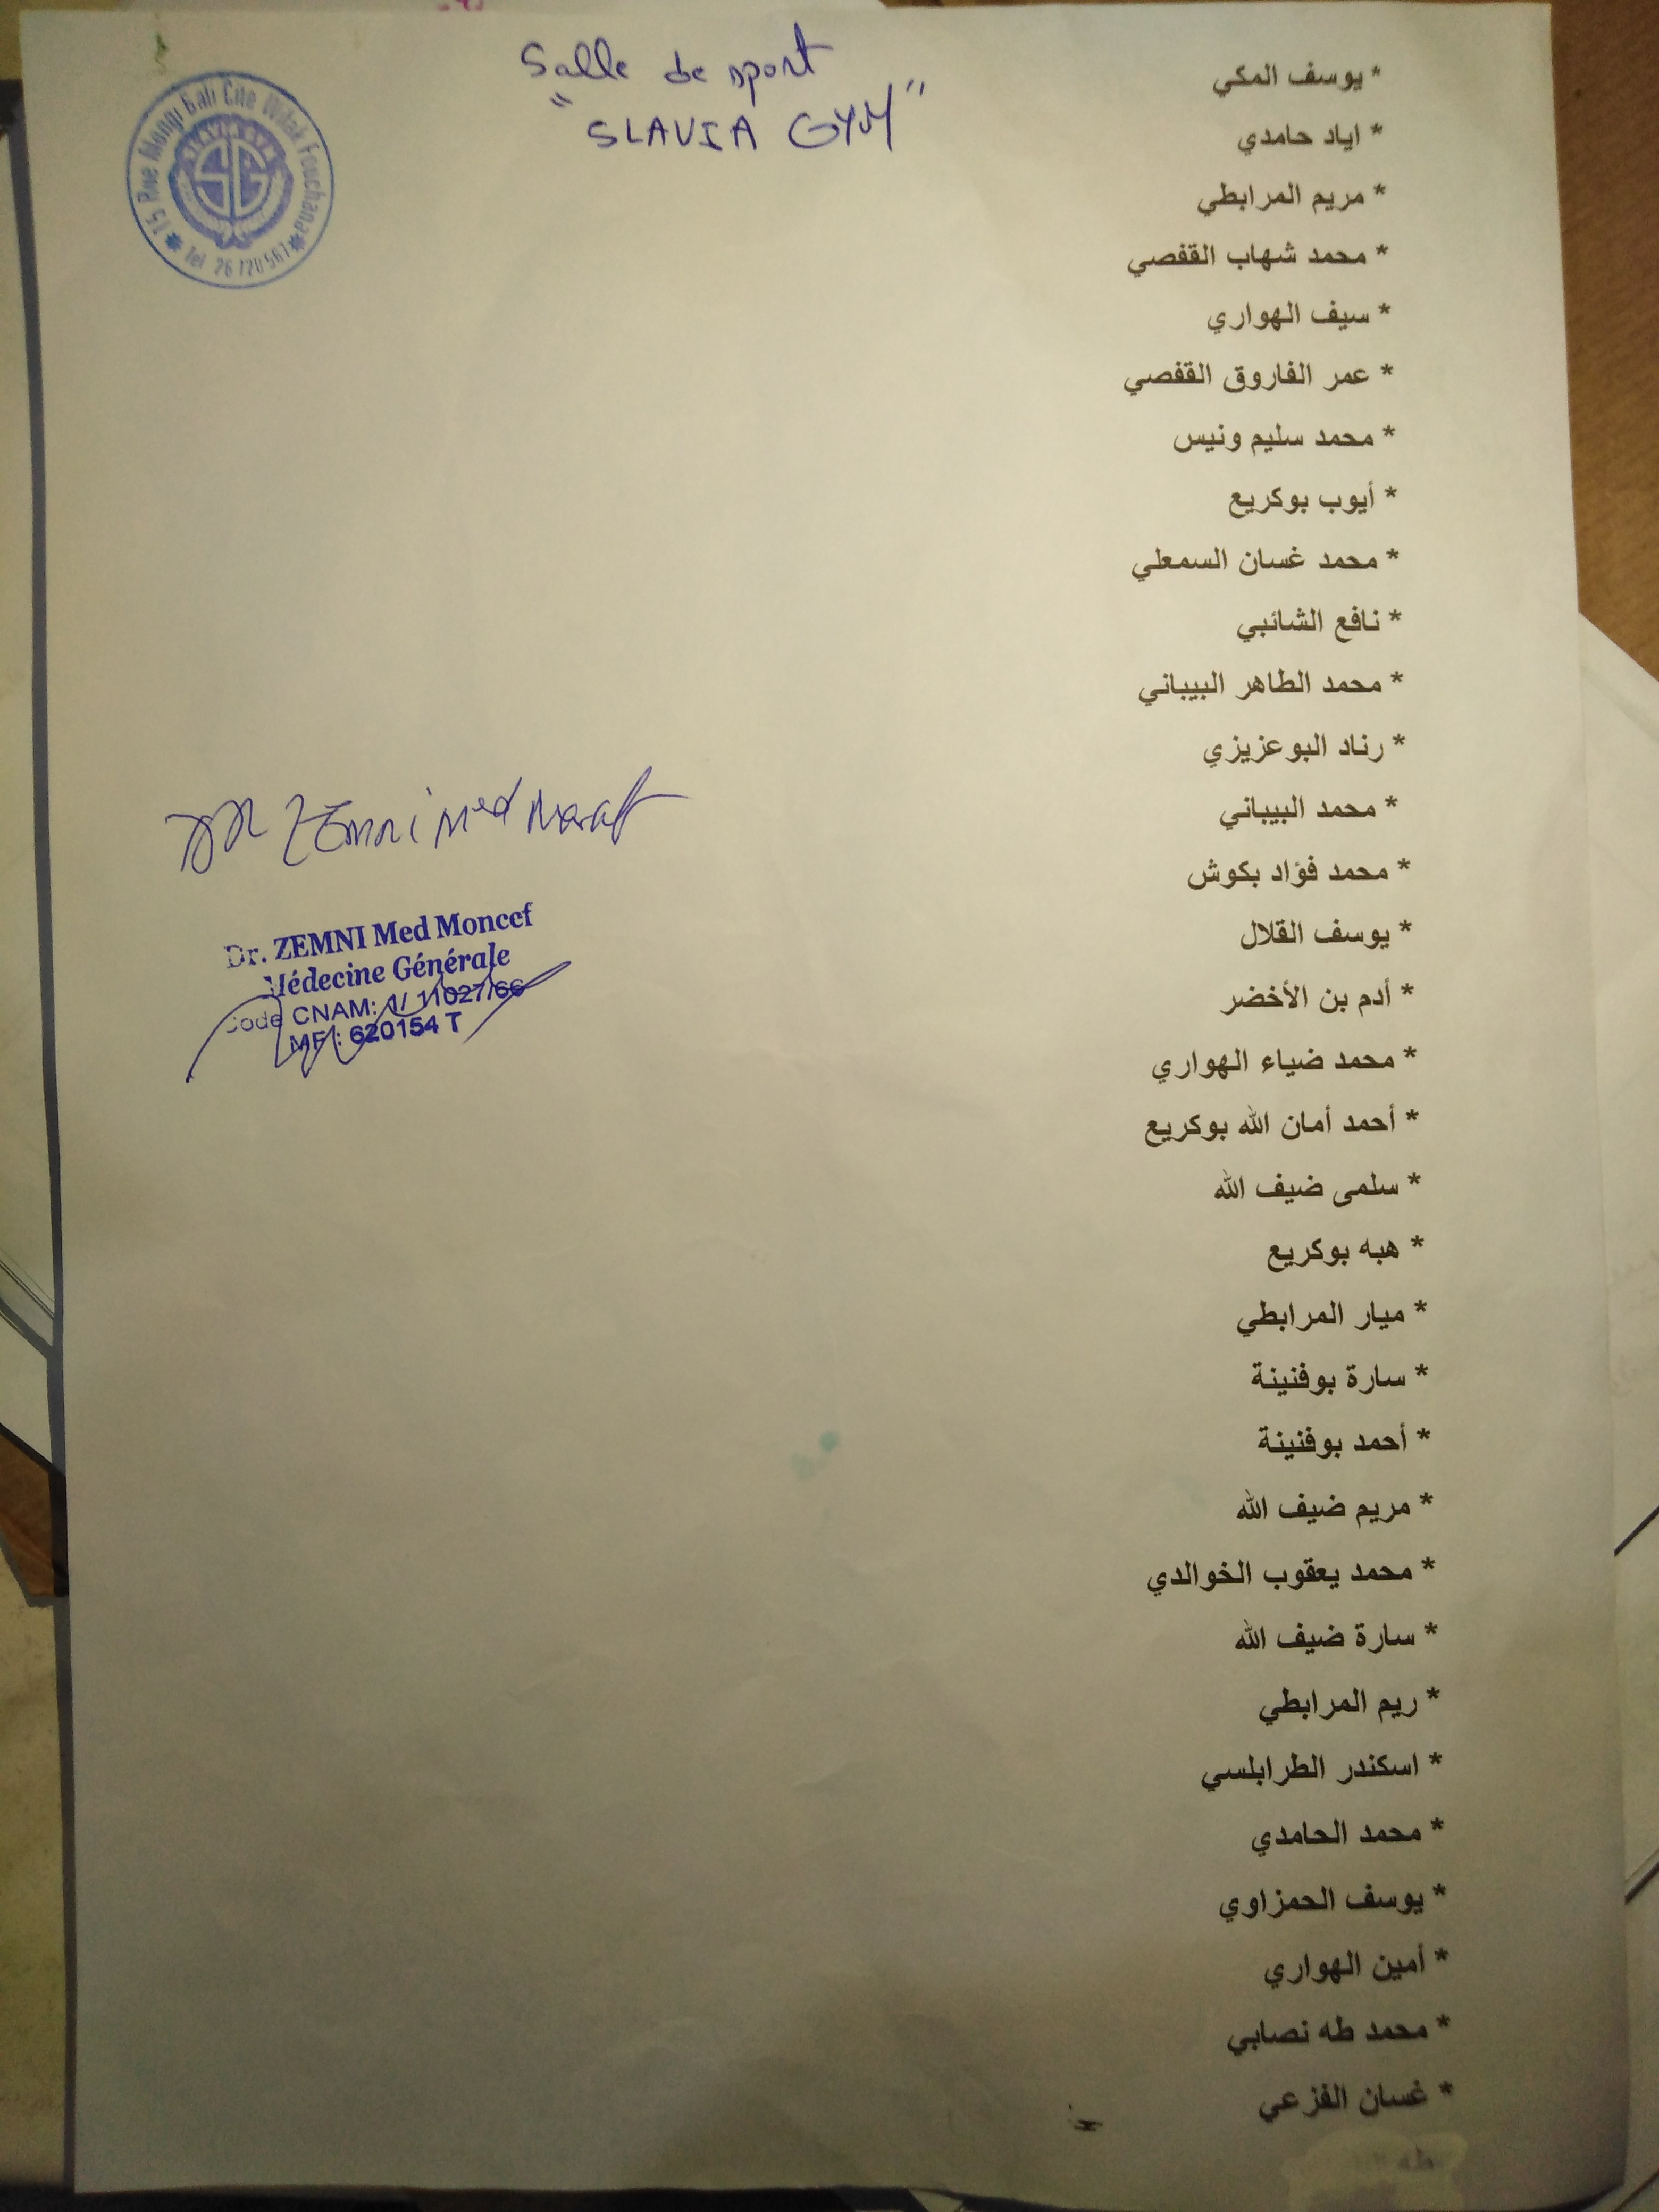 Salle de sport
"SLAVIA GYM"
15 Rue Mongi Bali Cite Wifak Fouchana
SLAVIA GYM
SG
Tel 26 720 567
* يوسف المكي
* اياد حامدي
* مريم المرابطي
* محمد شهاب القفصي
* سيف الهواري
* عمر الفاروق القفصي
* محمد سليم ونيس
* أيوب بوكريع
* محمد غسان السمعلي
* نافع الشائبي
* محمد الطاهر البيباني
* رناد البوعزيزي
* محمد البيباني
* محمد فؤاد بكوش
* يوسف القلال
* أدم بن الأخضر
* محمد ضياء الهواري
* أحمد أمان الله بوكريع
* سلمى ضيف الله
* هبه بوكريع
* ميار المرابطي
* سارة بوفنينة
* أحمد بوفنينة
* مريم ضيف الله
* محمد يعقوب الخوالدي
* سارة ضيف الله
* ريم المرابطي
* اسكندر الطرابلسي
* محمد الحامدي
* يوسف الحمزاوي
* أمين الهواري
* محمد طه نصابي
* غسان الفزعي
طه
DR ZEMNI Med
Dr. ZEMNI Med Moncef
Médecine Générale
Code CNAM: 1/ 11027/66
MF : 620154 T